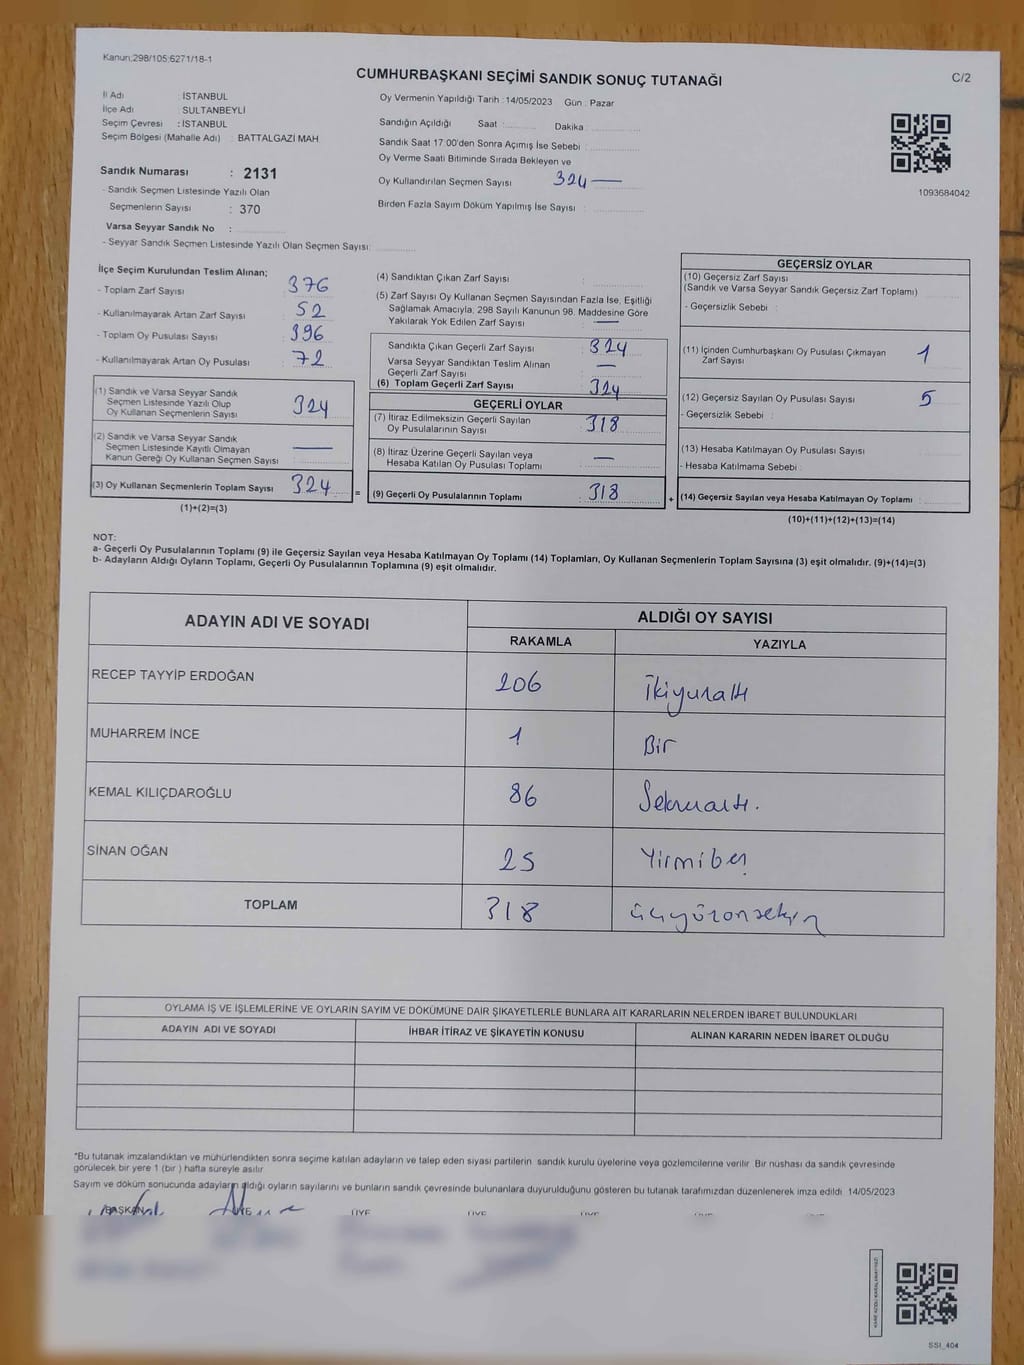 Kanun;298/105;6271/18-1
CUMHURBAŞKANI SEÇİMİ SANDIK SONUÇ TUTANAĞI
C/2
İl Adı : İSTANBUL
İlçe Adı : SULTANBEYLİ
Seçim Çevresi : İSTANBUL
Seçim Bölgesi (Mahalle Adı) : BATTALGAZİ MAH
Sandık Numarası : 2131
- Sandık Seçmen Listesinde Yazılı Olan
Seçmenlerin Sayısı : 370
Varsa Seyyar Sandık No :
- Seyyar Sandık Seçmen Listesinde Yazılı Olan Seçmen Sayısı:
Oy Vermenin Yapıldığı Tarih : 14/05/2023 Gün : Pazar
Sandığın Açıldığı Saat : Dakika :
Sandık Saat 17:00'den Sonra Açımış İse Sebebi :
Oy Verme Saati Bitiminde Sırada Bekleyen ve
Oy Kullandırılan Seçmen Sayısı : 324 —
Birden Fazla Sayım Döküm Yapılmış İse Sayısı :
1093684042
İlçe Seçim Kurulundan Teslim Alınan;
- Toplam Zarf Sayısı : 376
- Kullanılmayarak Artan Zarf Sayısı : 52
- Toplam Oy Pusulası Sayısı : 396
- Kullanılmayarak Artan Oy Pusulası : 72
(1) Sandık ve Varsa Seyyar Sandık
Seçmen Listesinde Yazılı Olup
Oy Kullanan Seçmenlerin Sayısı : 324
(2) Sandık ve Varsa Seyyar Sandık
Seçmen Listesinde Kayıtlı Olmayan
Kanun Gereği Oy Kullanan Seçmen Sayısı : —
(3) Oy Kullanan Seçmenlerin Toplam Sayısı : 324
(1)+(2)=(3)
(4) Sandıktan Çıkan Zarf Sayısı :
(5) Zarf Sayısı Oy Kullanan Seçmen Sayısından Fazla İse, Eşitliği
Sağlamak Amacıyla; 298 Sayılı Kanunun 98. Maddesine Göre
Yakılarak Yok Edilen Zarf Sayısı : —
Sandıkta Çıkan Geçerli Zarf Sayısı : 324
Varsa Seyyar Sandıktan Teslim Alınan
Geçerli Zarf Sayısı : —
(6) Toplam Geçerli Zarf Sayısı : 324
GEÇERLİ OYLAR
(7) İtiraz Edilmeksizin Geçerli Sayılan
Oy Pusulalarının Sayısı : 318
(8) İtiraz Üzerine Geçerli Sayılan veya
Hesaba Katılan Oy Pusulası Toplamı : —
= (9) Geçerli Oy Pusulalarının Toplamı : 318 +
GEÇERSİZ OYLAR
(10) Geçersiz Zarf Sayısı
(Sandık ve Varsa Seyyar Sandık Geçersiz Zarf Toplamı)
- Geçersizlik Sebebi :
(11) İçinden Cumhurbaşkanı Oy Pusulası Çıkmayan
Zarf Sayısı 1
(12) Geçersiz Sayılan Oy Pusulası Sayısı 5
- Geçersizlik Sebebi :
(13) Hesaba Katılmayan Oy Pusulası Sayısı
- Hesaba Katılmama Sebebi :
(14) Geçersiz Sayılan veya Hesaba Katılmayan Oy Toplamı :
(10)+(11)+(12)+(13)=(14)
NOT:
a- Geçerli Oy Pusulalarının Toplamı (9) ile Geçersiz Sayılan veya Hesaba Katılmayan Oy Toplamı (14) Toplamları, Oy Kullanan Seçmenlerin Toplam Sayısına (3) eşit olmalıdır. (9)+(14)=(3)
b- Adayların Aldığı Oyların Toplamı, Geçerli Oy Pusulalarının Toplamına (9) eşit olmalıdır.
ADAYIN ADI VE SOYADI
ALDIĞI OY SAYISI
RAKAMLA YAZIYLA
RECEP TAYYİP ERDOĞAN 206 İkiyuraltı
MUHARREM İNCE 1 Bir
KEMAL KILIÇDAROĞLU 86 Seksenaltı.
SİNAN OĞAN 25 Yirmibeş
TOPLAM 318 üçyüzonsekiz
OYLAMA İŞ VE İŞLEMLERİNE VE OYLARIN SAYIM VE DÖKÜMÜNE DAİR ŞİKAYETLERLE BUNLARA AİT KARARLARIN NELERDEN İBARET BULUNDUKLARI
ADAYIN ADI VE SOYADI İHBAR İTİRAZ VE ŞİKAYETİN KONUSU ALINAN KARARIN NEDEN İBARET OLDUĞU
*Bu tutanak imzalandıktan ve mühürlendikten sonra seçime katılan adayların ve talep eden siyasi partilerin sandık kurulu üyelerine veya gözlemcilerine verilir. Bir nüshası da sandık çevresinde
görülecek bir yere 1 (bir ) hafta süreyle asılır.
Sayım ve döküm sonucunda adayların aldığı oyların sayılarını ve bunların sandık çevresinde bulunanlara duyurulduğunu gösteren bu tutanak tarafımızdan düzenlenerek imza edildi 14/05/2023
BAŞKAN ÜYE ÜYE ÜYE ÜYE ÜYE ÜYE
SSI_404